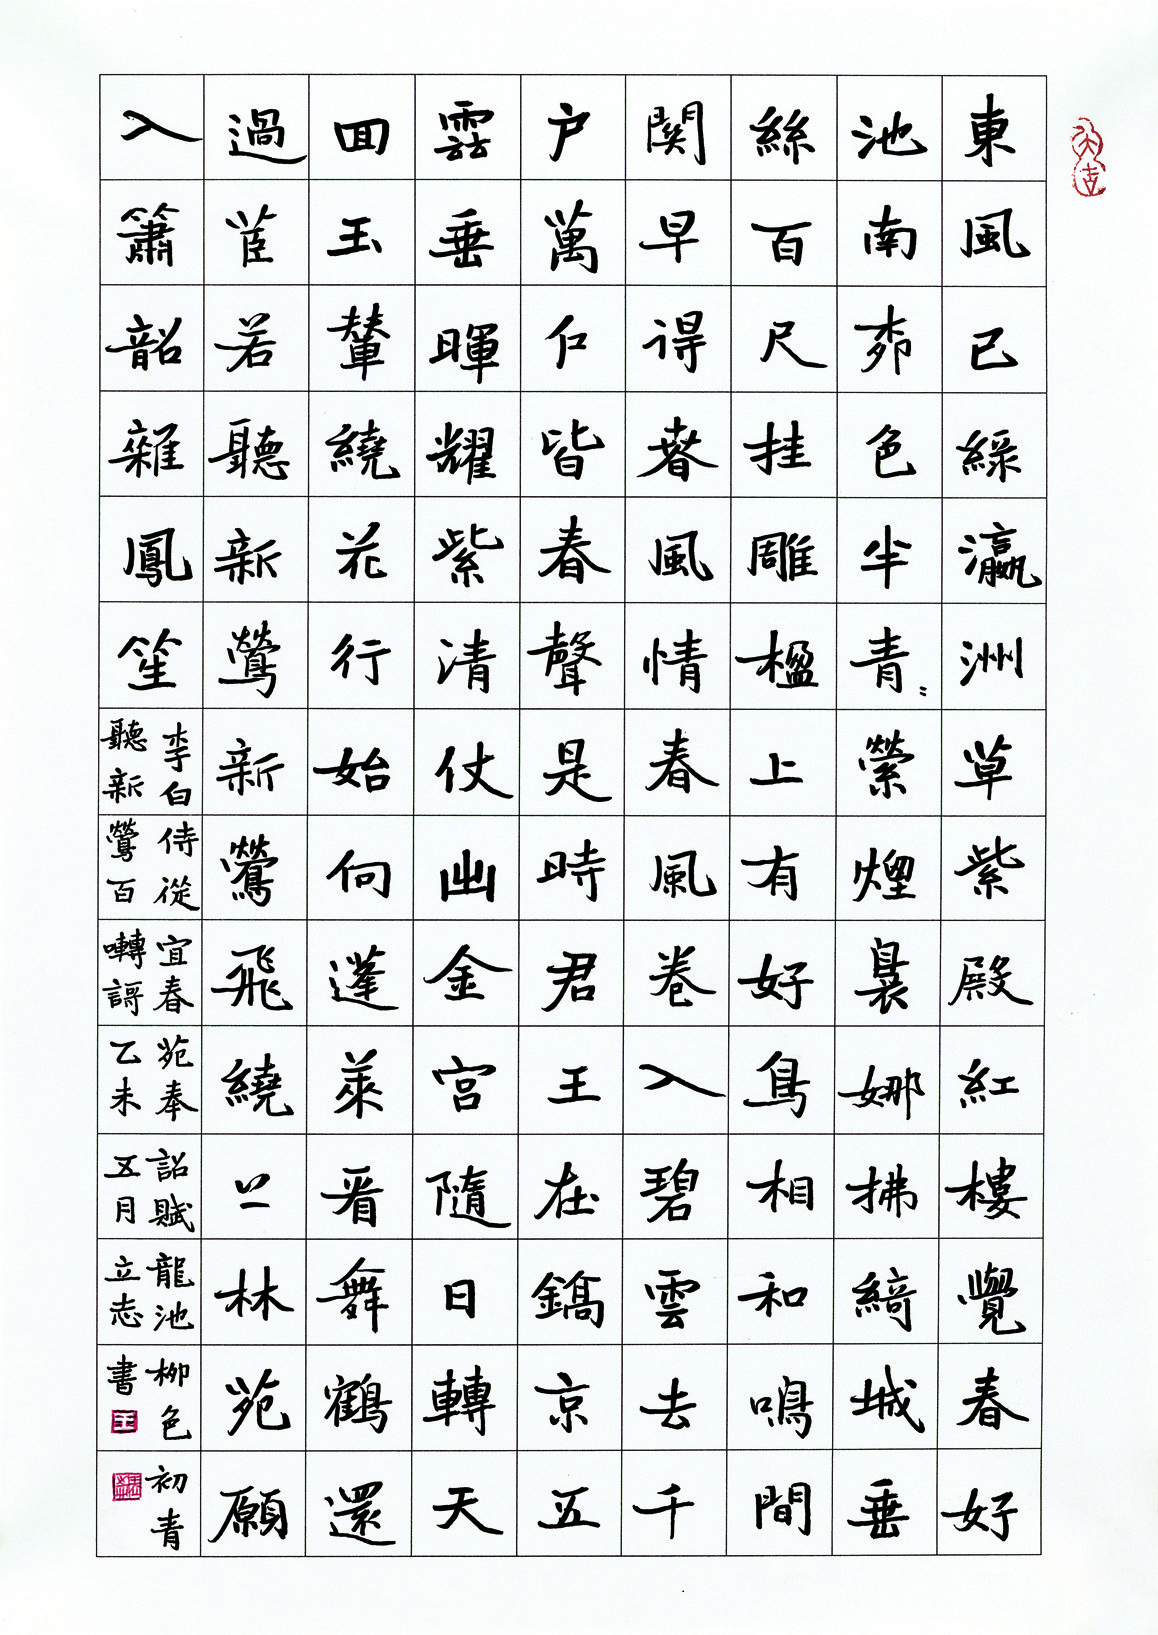 東風已綠瀛洲草紫殿紅樓覺春好
池南柳色半青〻縈煙裊娜拂綺城垂
絲百尺挂雕楹上有好鳥相和鳴間
關早得春風情春風卷入碧雲去千
户萬仁皆春聲是時君王在鎬京五
雲垂暉耀紫清仗出金宮隨日轉天
回玉輦繞花行始向蓬萊看舞鶴還
過茝若聽新鶯新鶯飛繞上林苑願
入簫韶雜鳳笙
李白侍從宜春苑奉詔賦龍池柳色初青
聽新鶯百囀謌乙未五月立志書
王